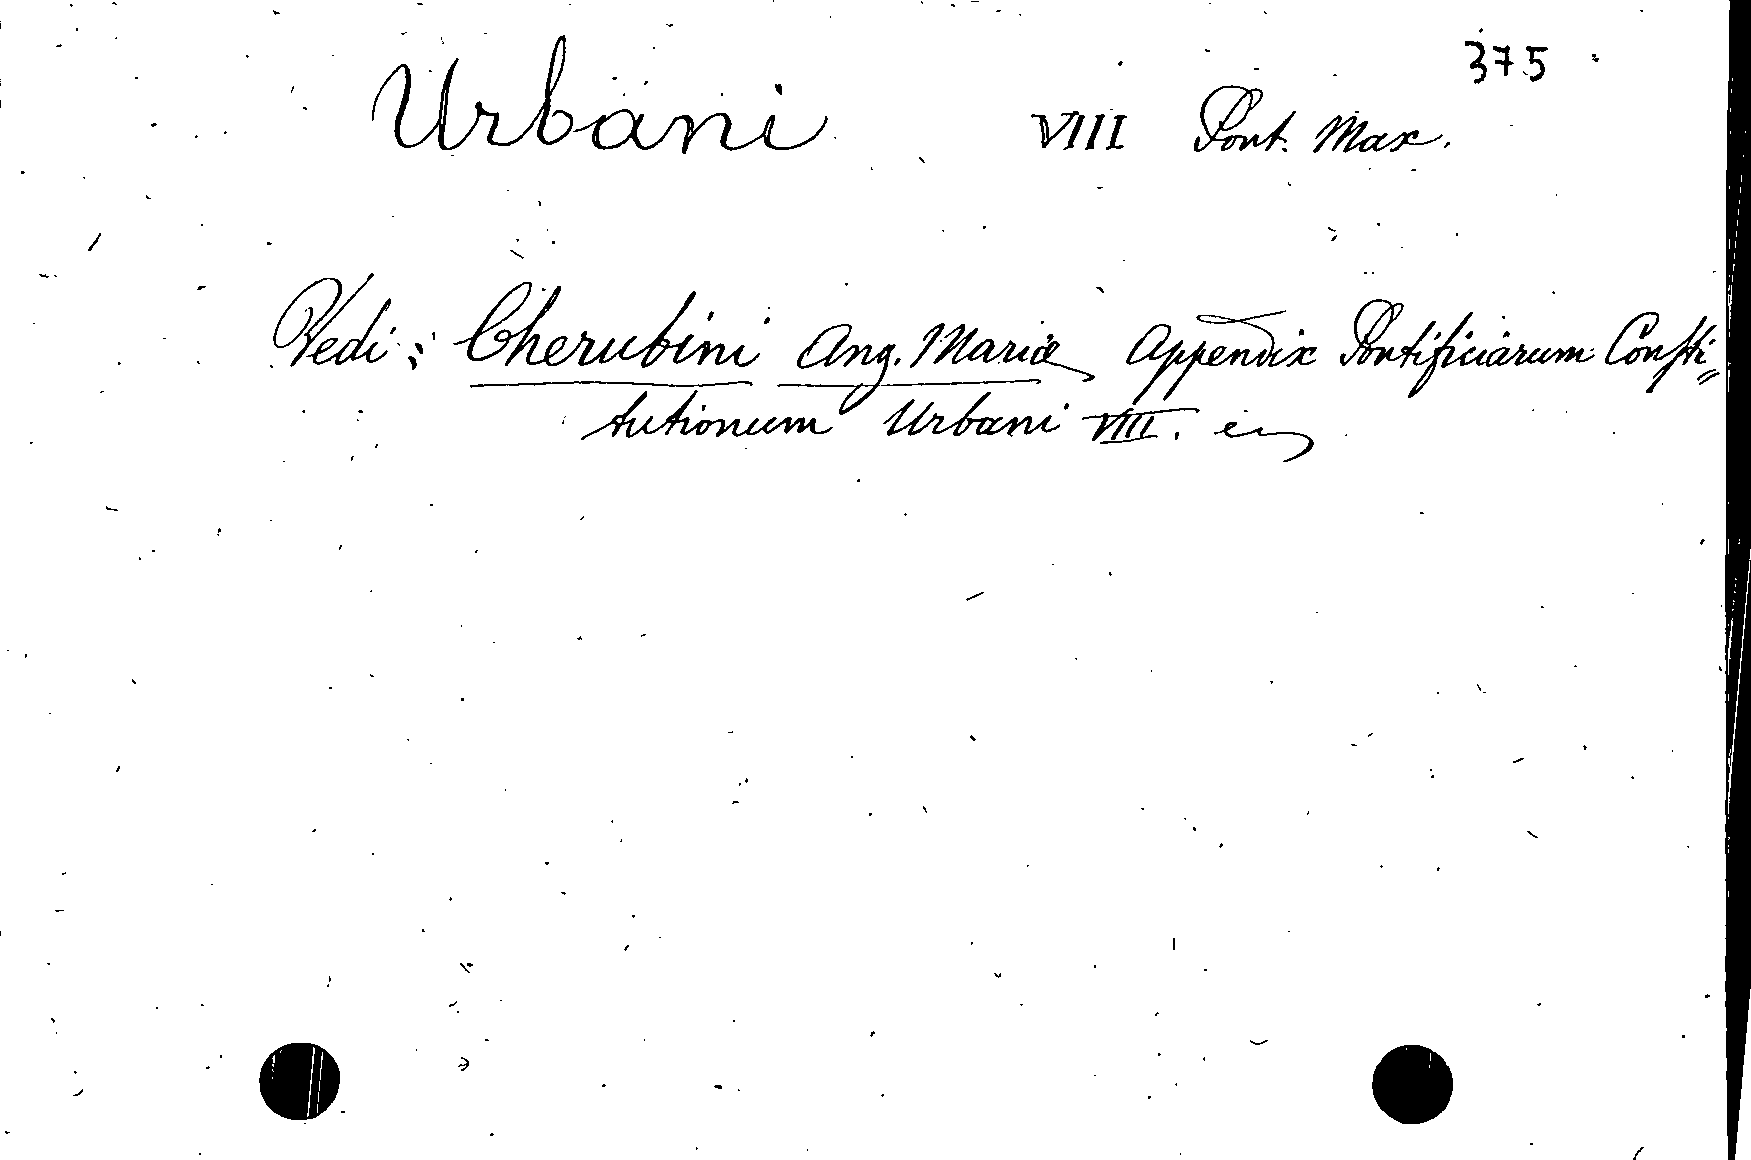 375
Urbani VIII Pont. Max.
Vedi: Cherubini Ang. Mariæ Appendix Pontificiarum Consti=
tutionum Urbani VIII.